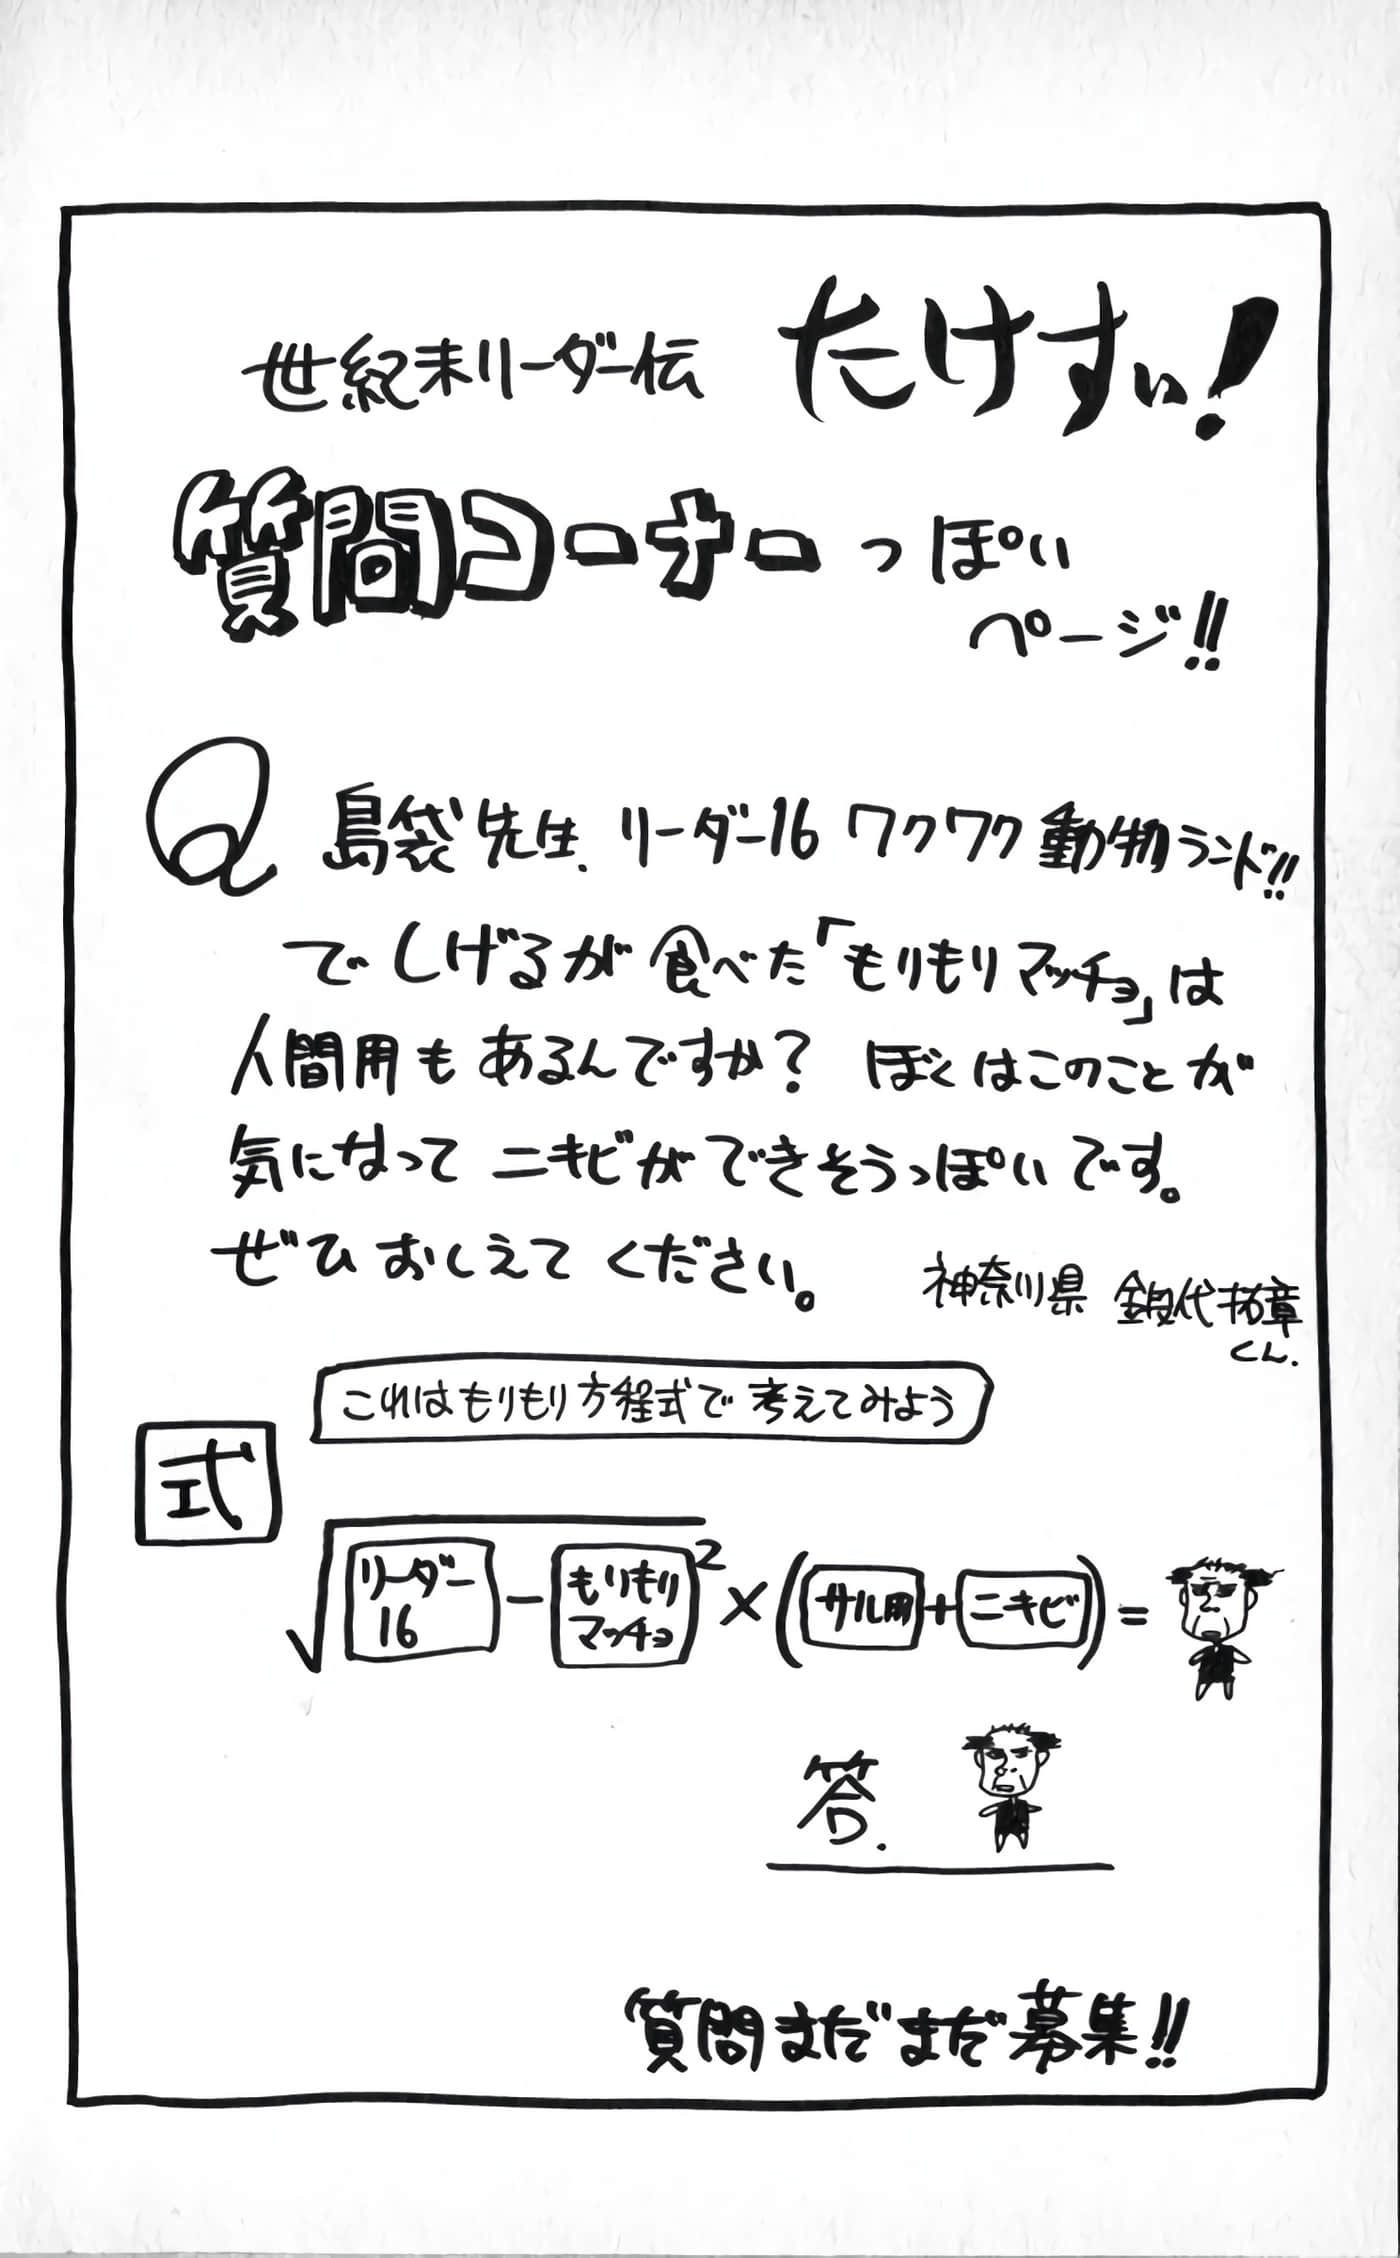 世紀末リーダー伝 たけすぃ!
質問コーナーっぽい
ページ!!
Q 島袋先生、リーダー16 ワクワク動物ランド!!
でしげるが食べた「もりもりマッチョ」は
人間用もあるんですか? ぼくはこのことが
気になって ニキビができそうっぽいです。
ぜひ おしえて ください。
神奈川県 代拓章
くん.
これはもりもり方程式で考えてみよう
式
√リーダー16 - もりもりマッチョ² × (サル用 + ニキビ) =
答.
質問まだまだ募集!!